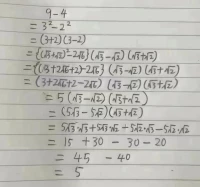 9-4
= 3²-2²
= (3+2)(3-2)
= {(√3+√2)²-2√6} (√3-√2)(√3+√2)
= {(3+2√6+2)-2√6} (√3-√2)(√3+√2)
= (3+2√6+2-2√6) (√3-√2)(√3+√2)
= 5(√3-√2)(√3+√2)
= (5√3-5√2)(√3+√2)
= 5√3·√3+5√3·√2-5√2·√3-5√2·√2
= 15 + 30 - 30 - 20
= 45 - 40
= 5